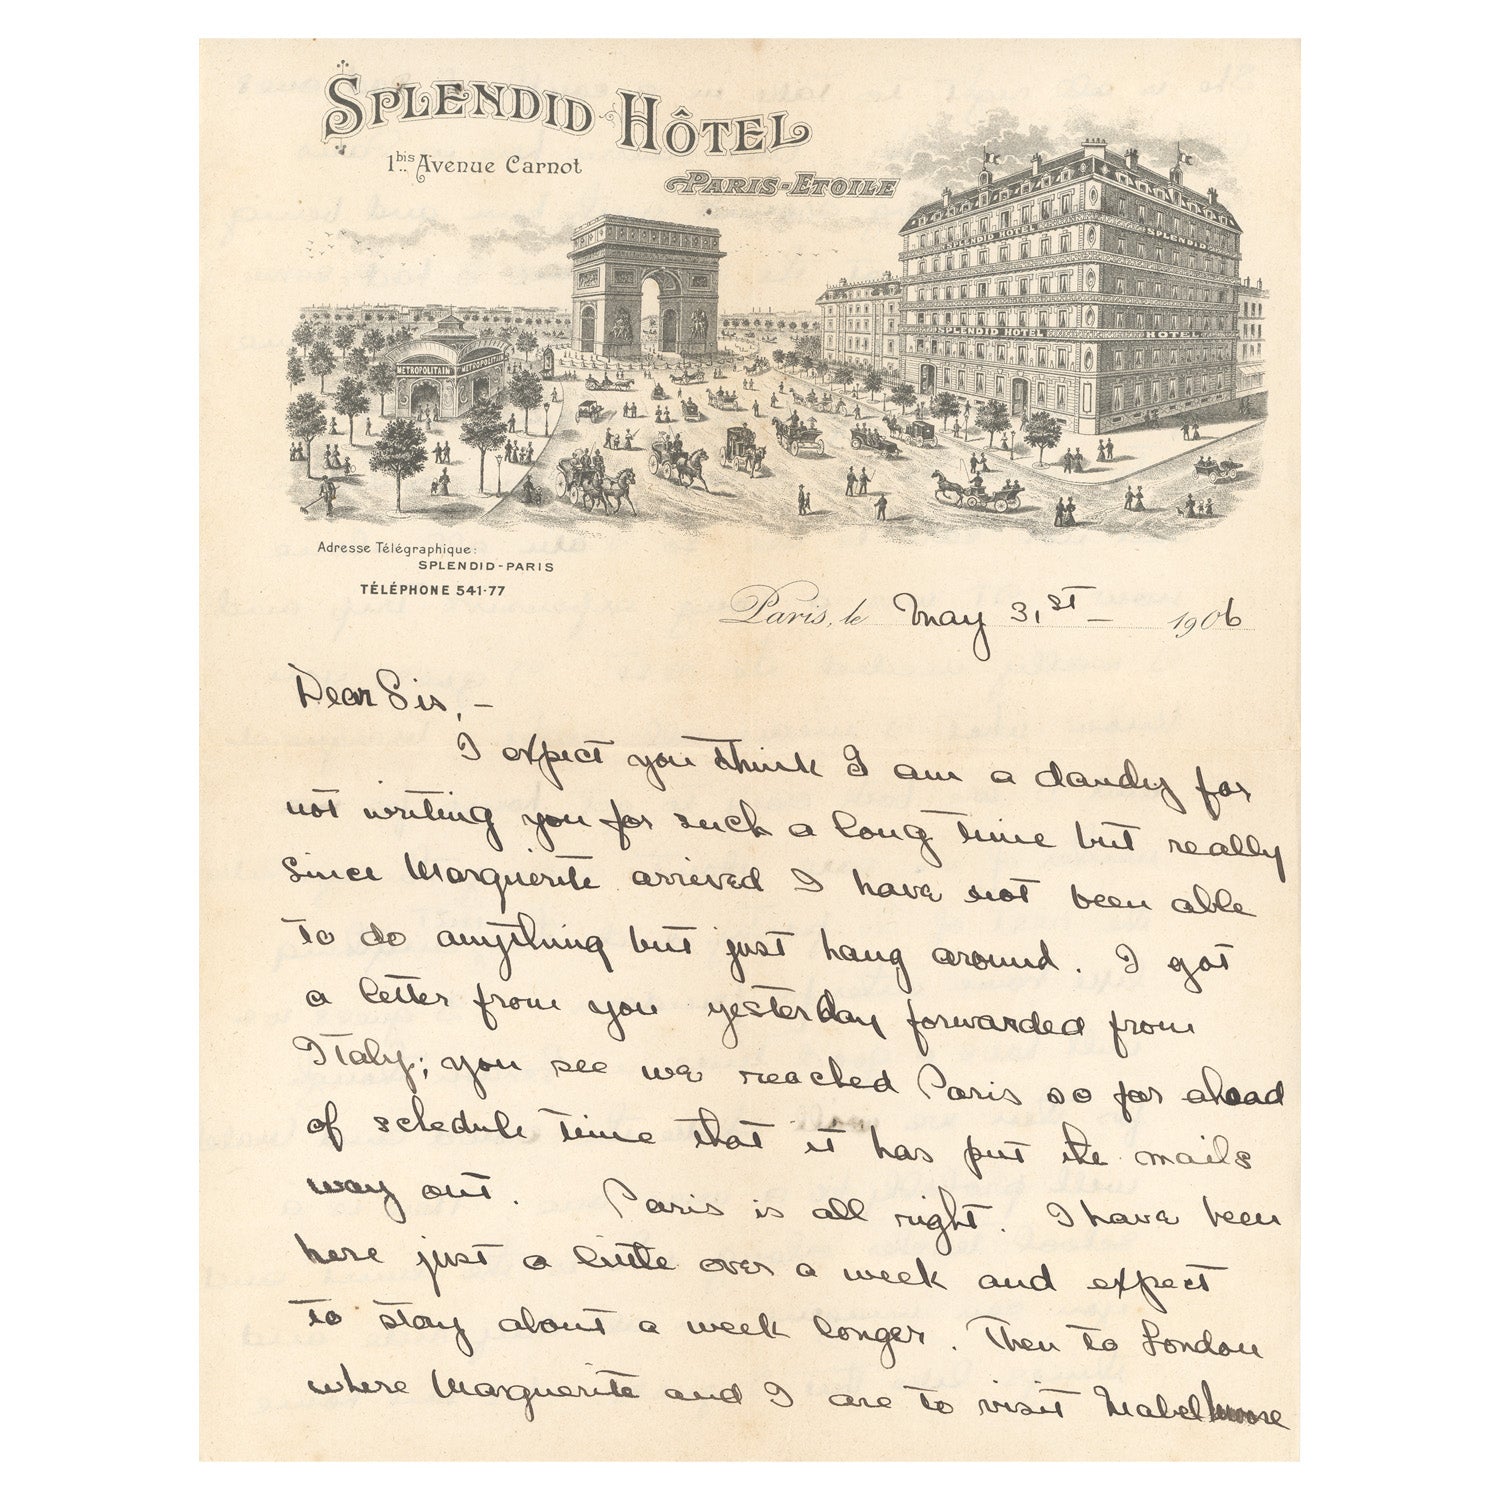 SPLENDID HÔTEL
1bis Avenue Carnot
PARIS-ETOILE
SPLENDID HOTEL
SPLENDID
SPLENDID HOTEL
HOTEL
METROPOLITAIN METROPOLITAIN
Adresse Télégraphique:
SPLENDID-PARIS
TÉLÉPHONE 541-77
Paris, le May 31st – 1906
Dear Sis, –
I expect you think I am a dandy for
not writing you for such a long time but really
since Marguerite arrived I have not been able
to do anything but just hang around. I got
a letter from you yesterday forwarded from
Italy; you see we reached Paris so far ahead
of schedule time that it has put the mails
way out. Paris is all right. I have been
here just a little over a week and expect
to stay about a week longer. Then to London
where Marguerite and I are to visit Mabel